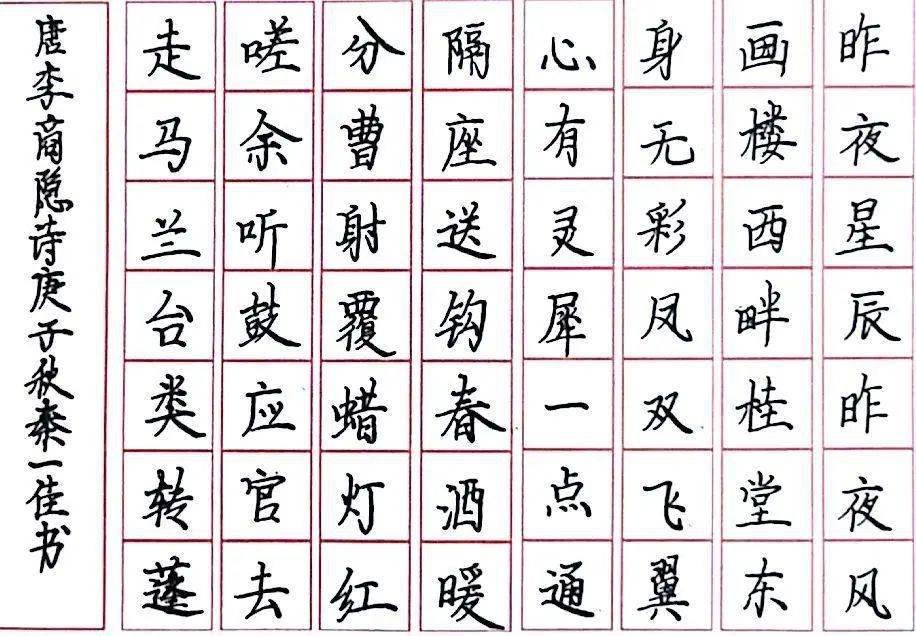 昨夜星辰昨夜风
画楼西畔桂堂东
身无彩凤双飞翼
心有灵犀一点通
隔座送钩春酒暖
分曹射覆蜡灯红
嗟余听鼓应官去
走马兰台类转蓬
唐李商隐诗庚子秋秦一佳书